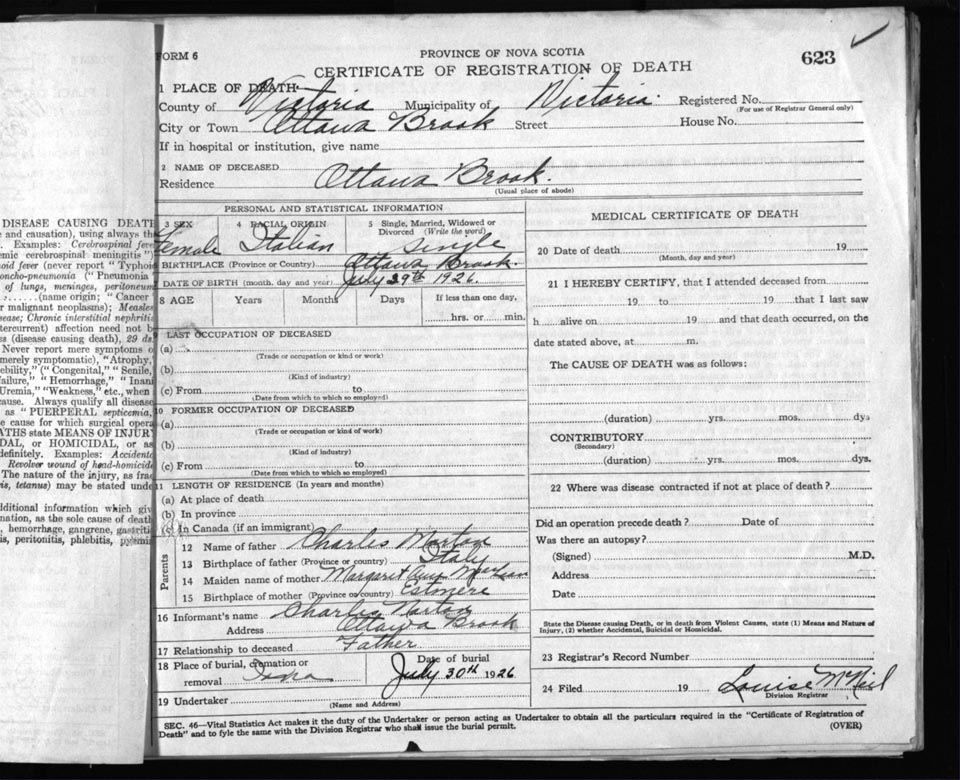 FORM 6
PROVINCE OF NOVA SCOTIA
623
CERTIFICATE OF REGISTRATION OF DEATH
1 PLACE OF DEATH
County of Victoria Municipality of Victoria. Registered No.
(For use of Registrar General only)
City or Town Ottawa Brook Street House No.
If in hospital or institution, give name
2 NAME OF DECEASED
Residence Ottawa Brook.
(Usual place of abode)
PERSONAL AND STATISTICAL INFORMATION
3 SEX 4 RACIAL ORIGIN 5 Single, Married, Widowed or Divorced (Write the word)
Female Italian Single
BIRTHPLACE (Province or Country) Ottawa Brook.
7 DATE OF BIRTH (month, day and year) July 29th 1926.
8 AGE Years Months Days If less than one day,
hrs. or min.
9 LAST OCCUPATION OF DECEASED
(a)
(Trade or occupation or kind or work)
(b)
(Kind of industry)
(c) From to
(Date from which to which so employed)
10 FORMER OCCUPATION OF DECEASED
(a)
(Trade or occupation or kind of work)
(b)
(Kind of industry)
(c) From to
(Date from which to which so employed)
11 LENGTH OF RESIDENCE (In years and months)
(a) At place of death
(b) In province
(c) In Canada (if an immigrant)
Parents
12 Name of father Charles
13 Birthplace of father (Province or country) Italy
14 Maiden name of mother Margaret
15 Birthplace of mother (Province or country) Estmere
16 Informant's name Charles
Address Ottawa Brook
17 Relationship to deceased Father
18 Place of burial, cremation or removal Iona Date of burial July 30th 1926
19 Undertaker
(Name and Address)
MEDICAL CERTIFICATE OF DEATH
20 Date of death 19
(Month, day and year)
21 I HEREBY CERTIFY, that I attended deceased from
19 to 19 that I last saw
h alive on 19 and that death occurred, on the
date stated above, at m.
The CAUSE OF DEATH was as follows:
(duration) yrs. mos. dys
CONTRIBUTORY
(Secondary)
(duration) yrs. mos. dys.
22 Where was disease contracted if not at place of death?
Did an operation precede death? Date of
Was there an autopsy?
(Signed) M.D.
Address
Date
State the Disease causing Death, or in death from Violent Causes, state (1) Means and Nature of
Injury, (2) whether Accidental, Suicidal or Homicidal.
23 Registrar's Record Number
24 Filed 19 Louise McNeil
Division Registrar
SEC. 46—Vital Statistics Act makes it the duty of the Undertaker or person acting as Undertaker to obtain all the particulars required in the "Certificate of Registration of
Death" and to fyle the same with the Division Registrar who shall issue the burial permit. (OVER)
DISEASE CAUSING DEATH
e and causation), using always th
. Examples: Cerebrospinal feve
emic cerebrospinal meningitis")
oid fever (never report "Typhoi
oncho-pneumonia ("Pneumonia
of lungs, meninges, peritoneum
(name origin; "Cancer
r malignant neoplasms); Measles
sease; Chronic interstitial nephriti
tercurrent) affection need not b
s (disease causing death), 29 ds.
Never report mere symptoms o
merely symptomatic), "Atrophy,
ebility," ("Congenital," "Senile,
ailure," "Hemorrhage," "Inani
Uremia," "Weakness," etc., when
cause. Always qualify all disease
as "PUERPERAL septicemia,
e cause for which surgical opera
ATHS state MEANS OF INJURY
DAL, or HOMICIDAL, or as
definitely. Examples: Accidenta
Revolver wound of head-homicide
The nature of the injury, as frac
is, tetanus) may be stated unde
dditional information which giv
nation, as the sole cause of death
, hemorrhage, gangrene, gastriti
is, peritonitis, phlebitis, pyemia